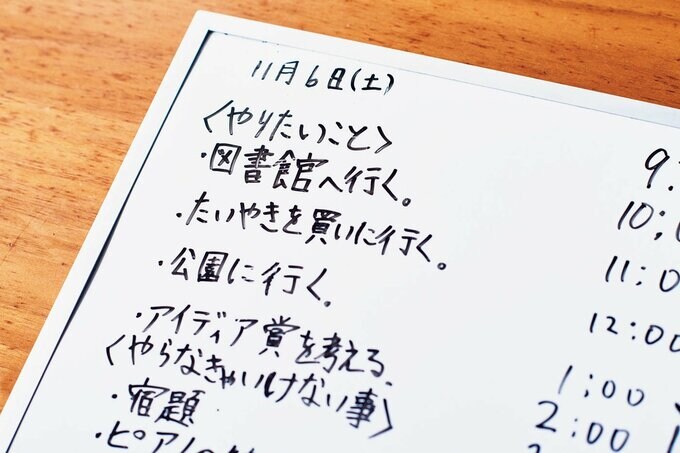 11月6日(土)
〈やりたいこと〉
・図書館へ行く。
・たいやきを買いに行く。
・公園に行く。
・アイディア賞を考える。
〈やらなきゃいけない事〉
・宿題
・ピアノの
9:
10:
11:0
12:00
1:00
2:00